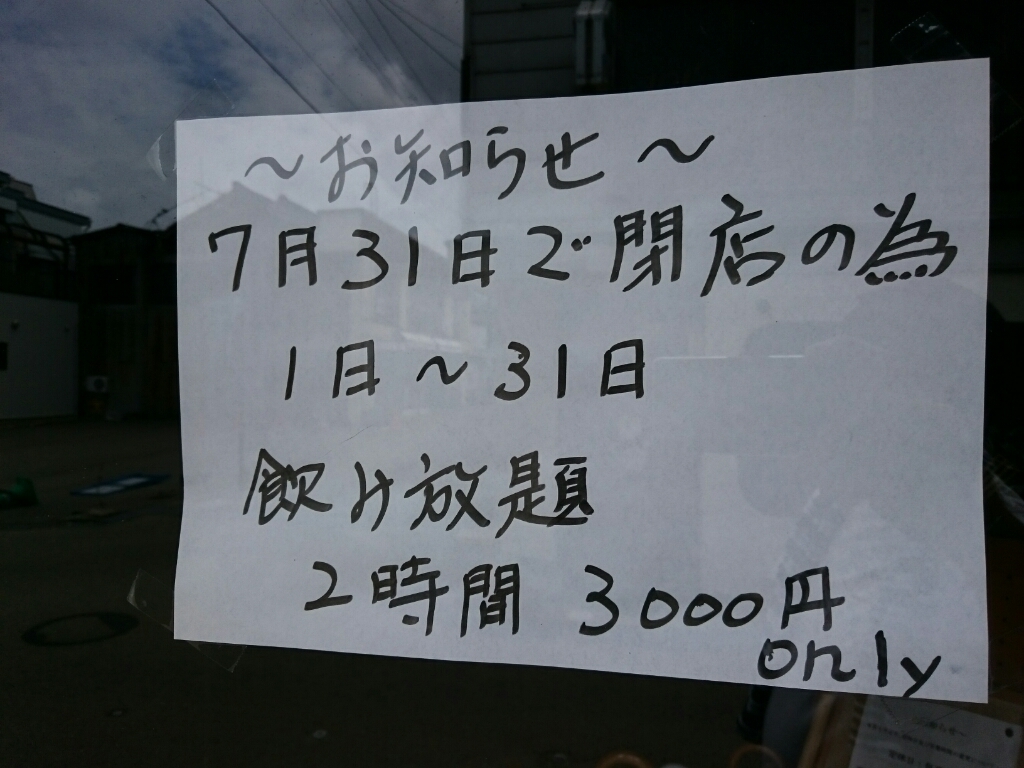 ～お知らせ～
7月31日で閉店の為
1日～31日
飲み放題
2時間 3000円
only